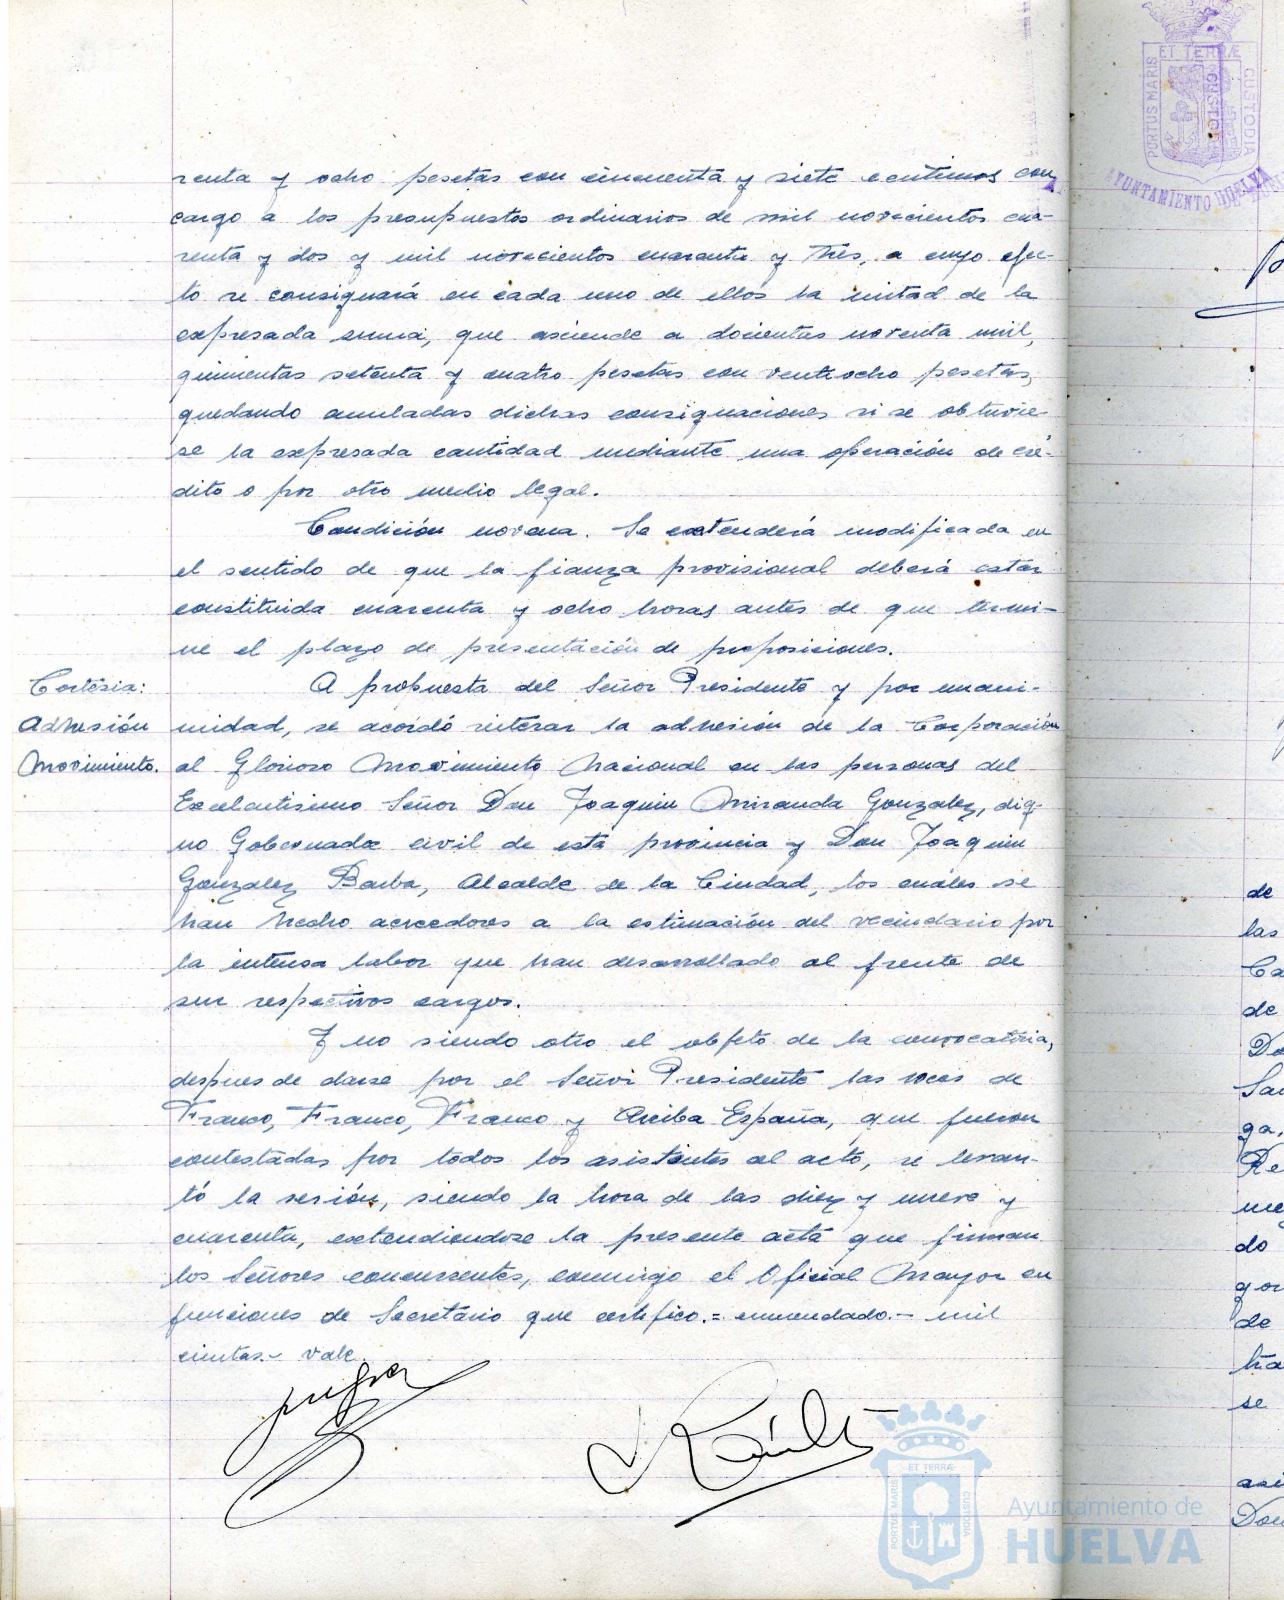 renta y ocho pesetas con cincuenta y siete centimos con
cargo a los presupuestos ordinarios de mil novecientos cua-
renta y dos y mil novecientos cuarenta y tres, a cuyo efec-
to se consignará en cada uno de ellos la mitad de la
expresada suma, que asciende a docientas noventa mil,
quinientas setenta y cuatro pesetas con ventiocho pesetas,
quedando anuladas dichas consignaciones si se obtuvie-
se la expresada cantidad mediante una operación de cré-
dito o por otro medio legal.
Condición novena. Se extenderá modificada en
el sentido de que la fianza provisional deberá estar
constituida cuarenta y ocho horas antes de que termi-
ne el plazo de presentación de proposiciones.
Cortesia:
Adhesión
Movimiento.
A propuesta del Señor Presidente y por unani-
midad, se acordó reiterar la adhesión de la Corporación
al Glorioso Movimiento Nacional en las personas del
Excelentisimo Señor Don Joaquin Miranda Gonzalez, dig-
no Gobernador civil de esta provincia y Don Joaquin
Gonzalez Barba, Alcalde de la Ciudad, los cuáles se
han hecho acreedores a la estimación del vecindario por
la intensa labor que han desarrollado al frente de
sus respectivos cargos.
Y no siendo otro el objeto de la convocatoria,
despues de darse por el Señor Presidente las voces de
Franco, Franco, Franco y Arriba España, que fueron
contestadas por todos los asistentes al acto, se levan-
tó la sesión, siendo la hora de las diez y nueve y
cuarenta, extendiendose la presente acta que firman
los Señores concurrentes, conmigo el Oficial Mayor en
funciones de Secretario que certifico.= enmendado.- mil
cientas.- vale.
PORTUS MARIS ET TERRÆ CUSTODIA
AYUNTAMIENTO HUELVA
de
las
Ca
de
Do
San
ga,
Re
me
do
gor
de
tra
se
asi
Don
PORTUS MARIS ET TERRÆ CUSTODIA
Ayuntamiento de
HUELVA